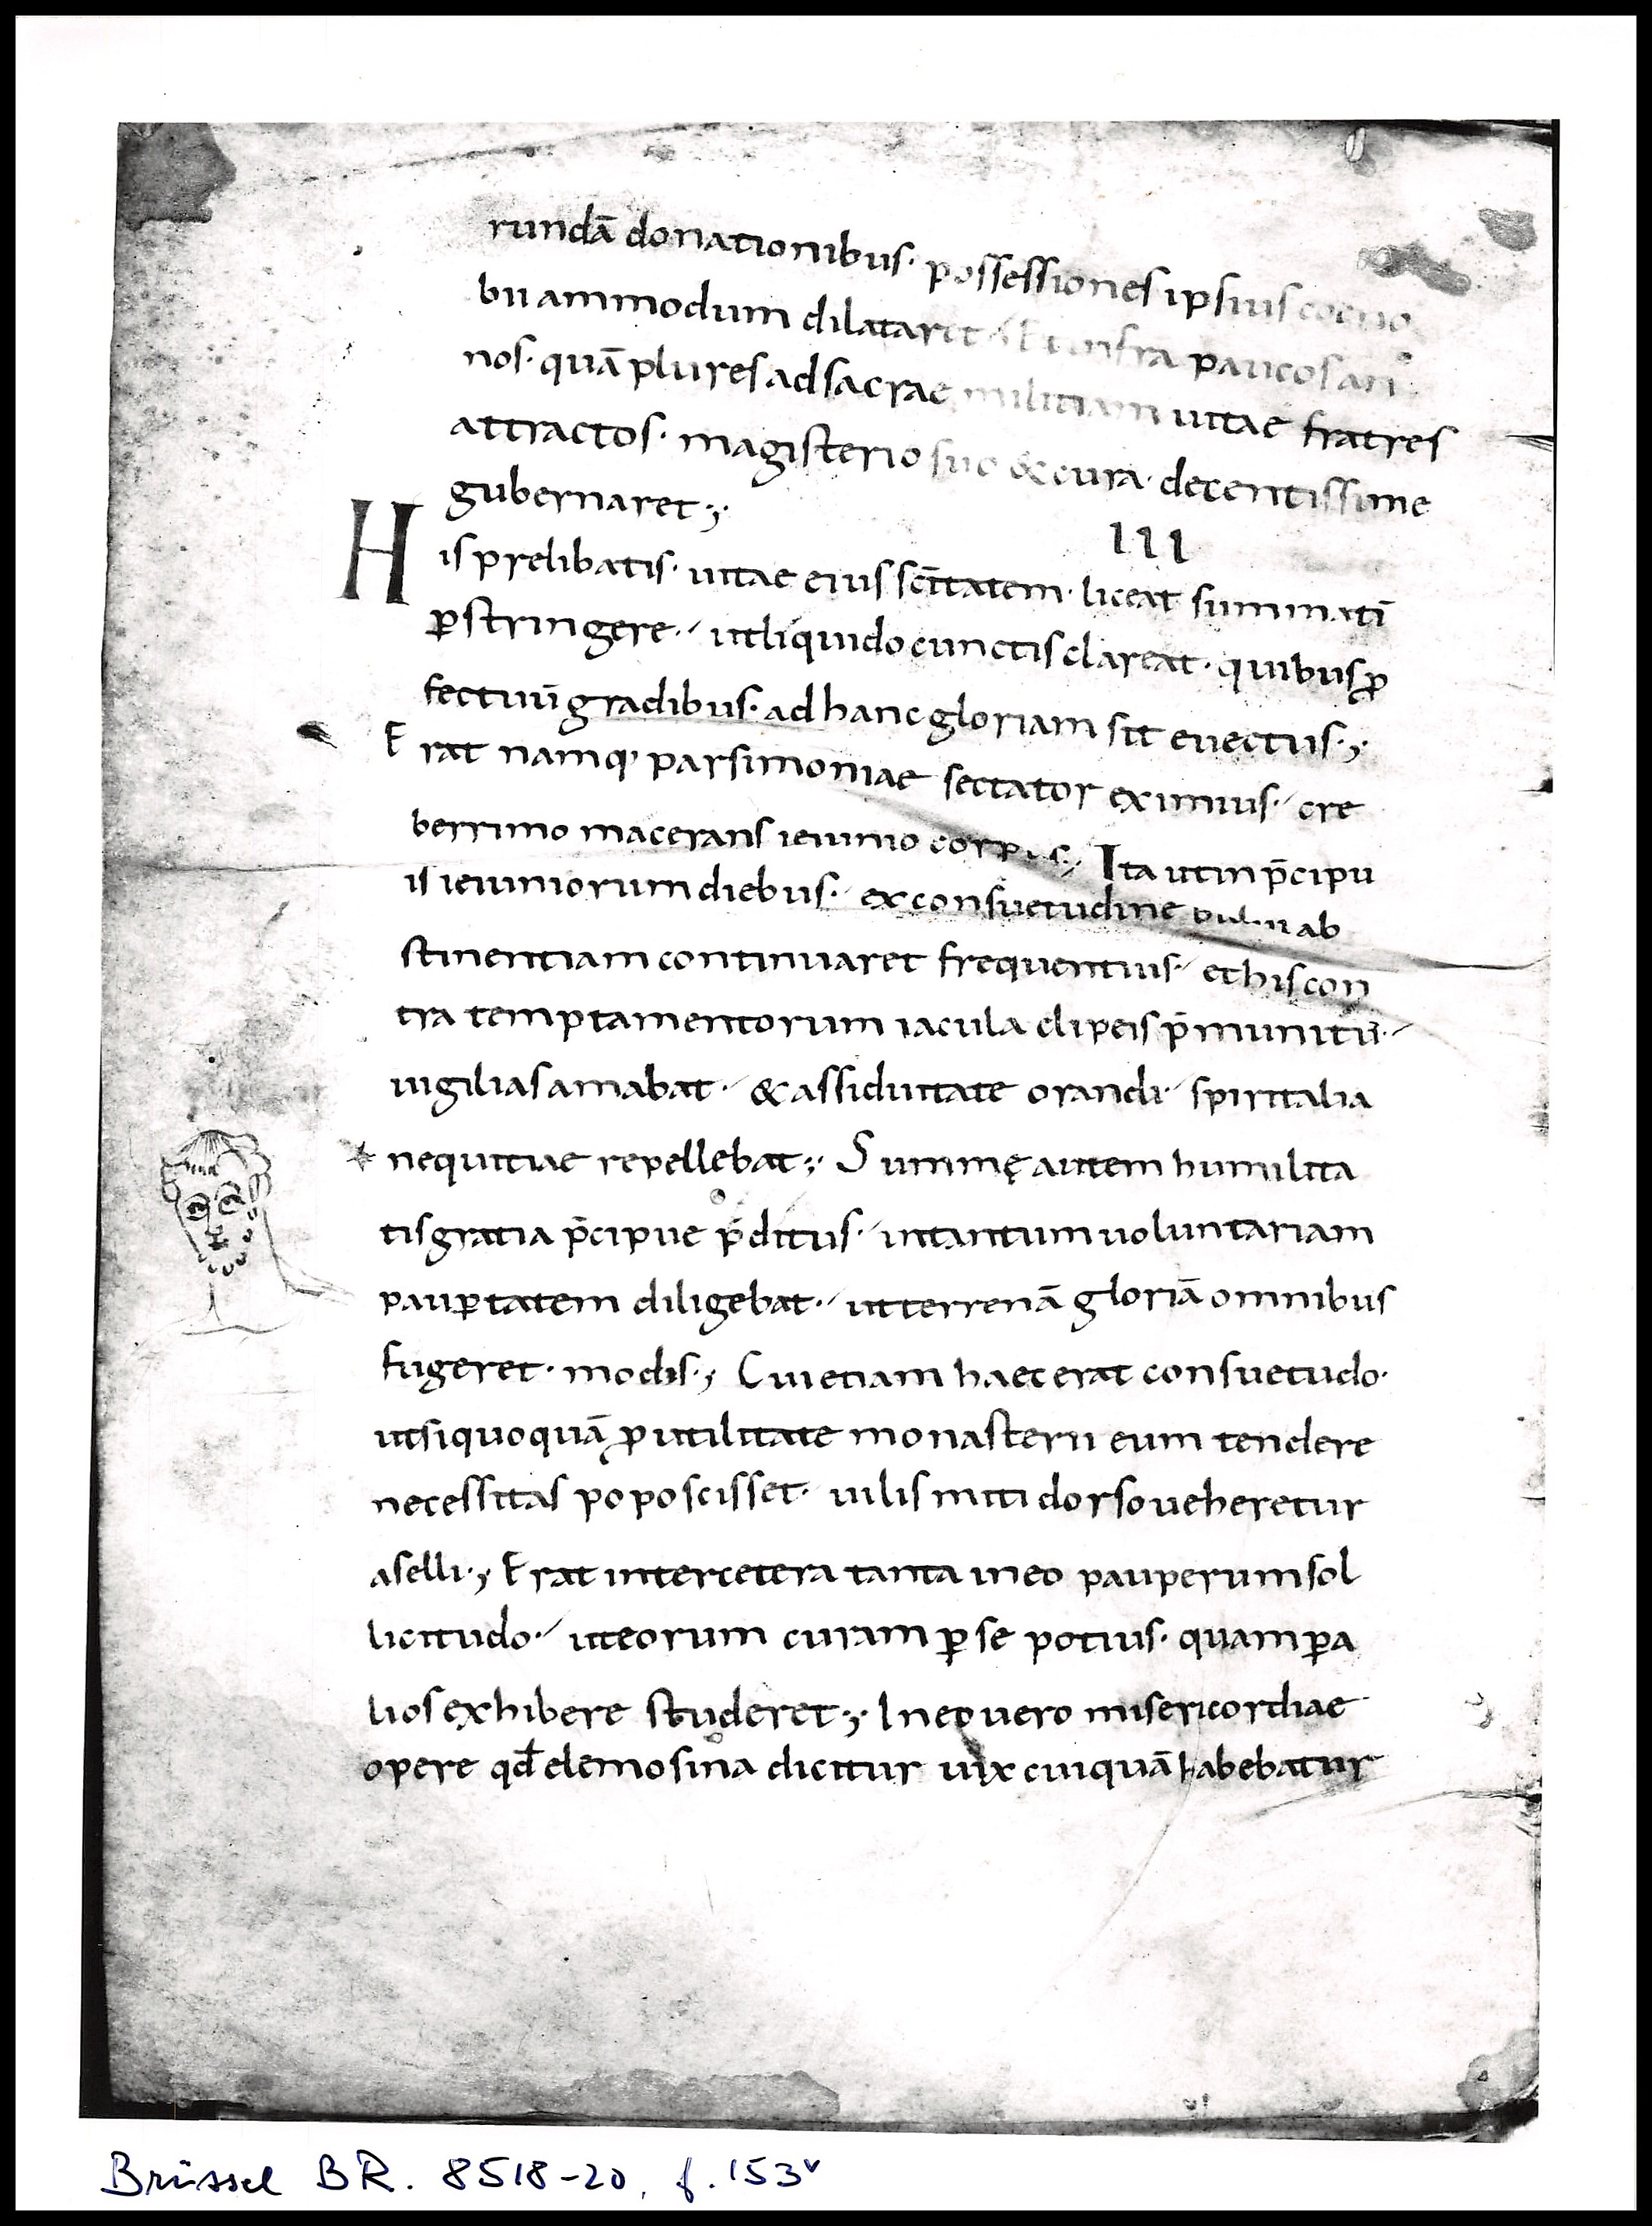 rundā donationibus· possessiones ipsius coeno
bii ammodum dilataret· Et infra paucos an
nos· quā plures ad sacrae militiam uitae fratres
attractos· magisterio suo & cura· decentissime
gubernaret·,·
III
His prelibatis· uitae eius sc̄itatem· liceat summatī
ꝑstringere·/ ut liquido cunctis clareat· quibus ꝓ
fectuū gradibus· ad hanc gloriam sit euectus·,·
Erat namq· parsimoniae sectator eximius·/ cre
berrimo macerans ieiunio corpus·, Ita ut in p̄cipu
is ieiuniorum diebus·/ ex consuetudine ab
stinentiam continuaret frequentius·/ et his con
tra temptamentorum iacula clipeis p̄munitū·/
uigilias amabat·/ & assiduitate orandi·/ spiritalia
nequitiae repellebat·,· Summę autem humilita
tis gratia p̄cipue p̄ditus·/ intantum uoluntariam
pauꝑtatem diligebat·/ ut terrenā gloriā omnibus
fugeret· modis·, Cui etiam haec erat consuetudo·
ut si quoquā ꝓ utilitate monasterii eum tendere
necessitas poposcisset· uilis miti dorso ueheretur
aselli·, Erat inter cetera tanta in eo pauperum sol
licitudo·/ ut eorum curam ꝑ se potius· quam ꝑ a
lios exhibere studeret·,· In eo uero misericordiae
opere qd̄ elemosina dicitur uix cuiquā habebatur
Brüssel BR. 8518-20, f. 153v